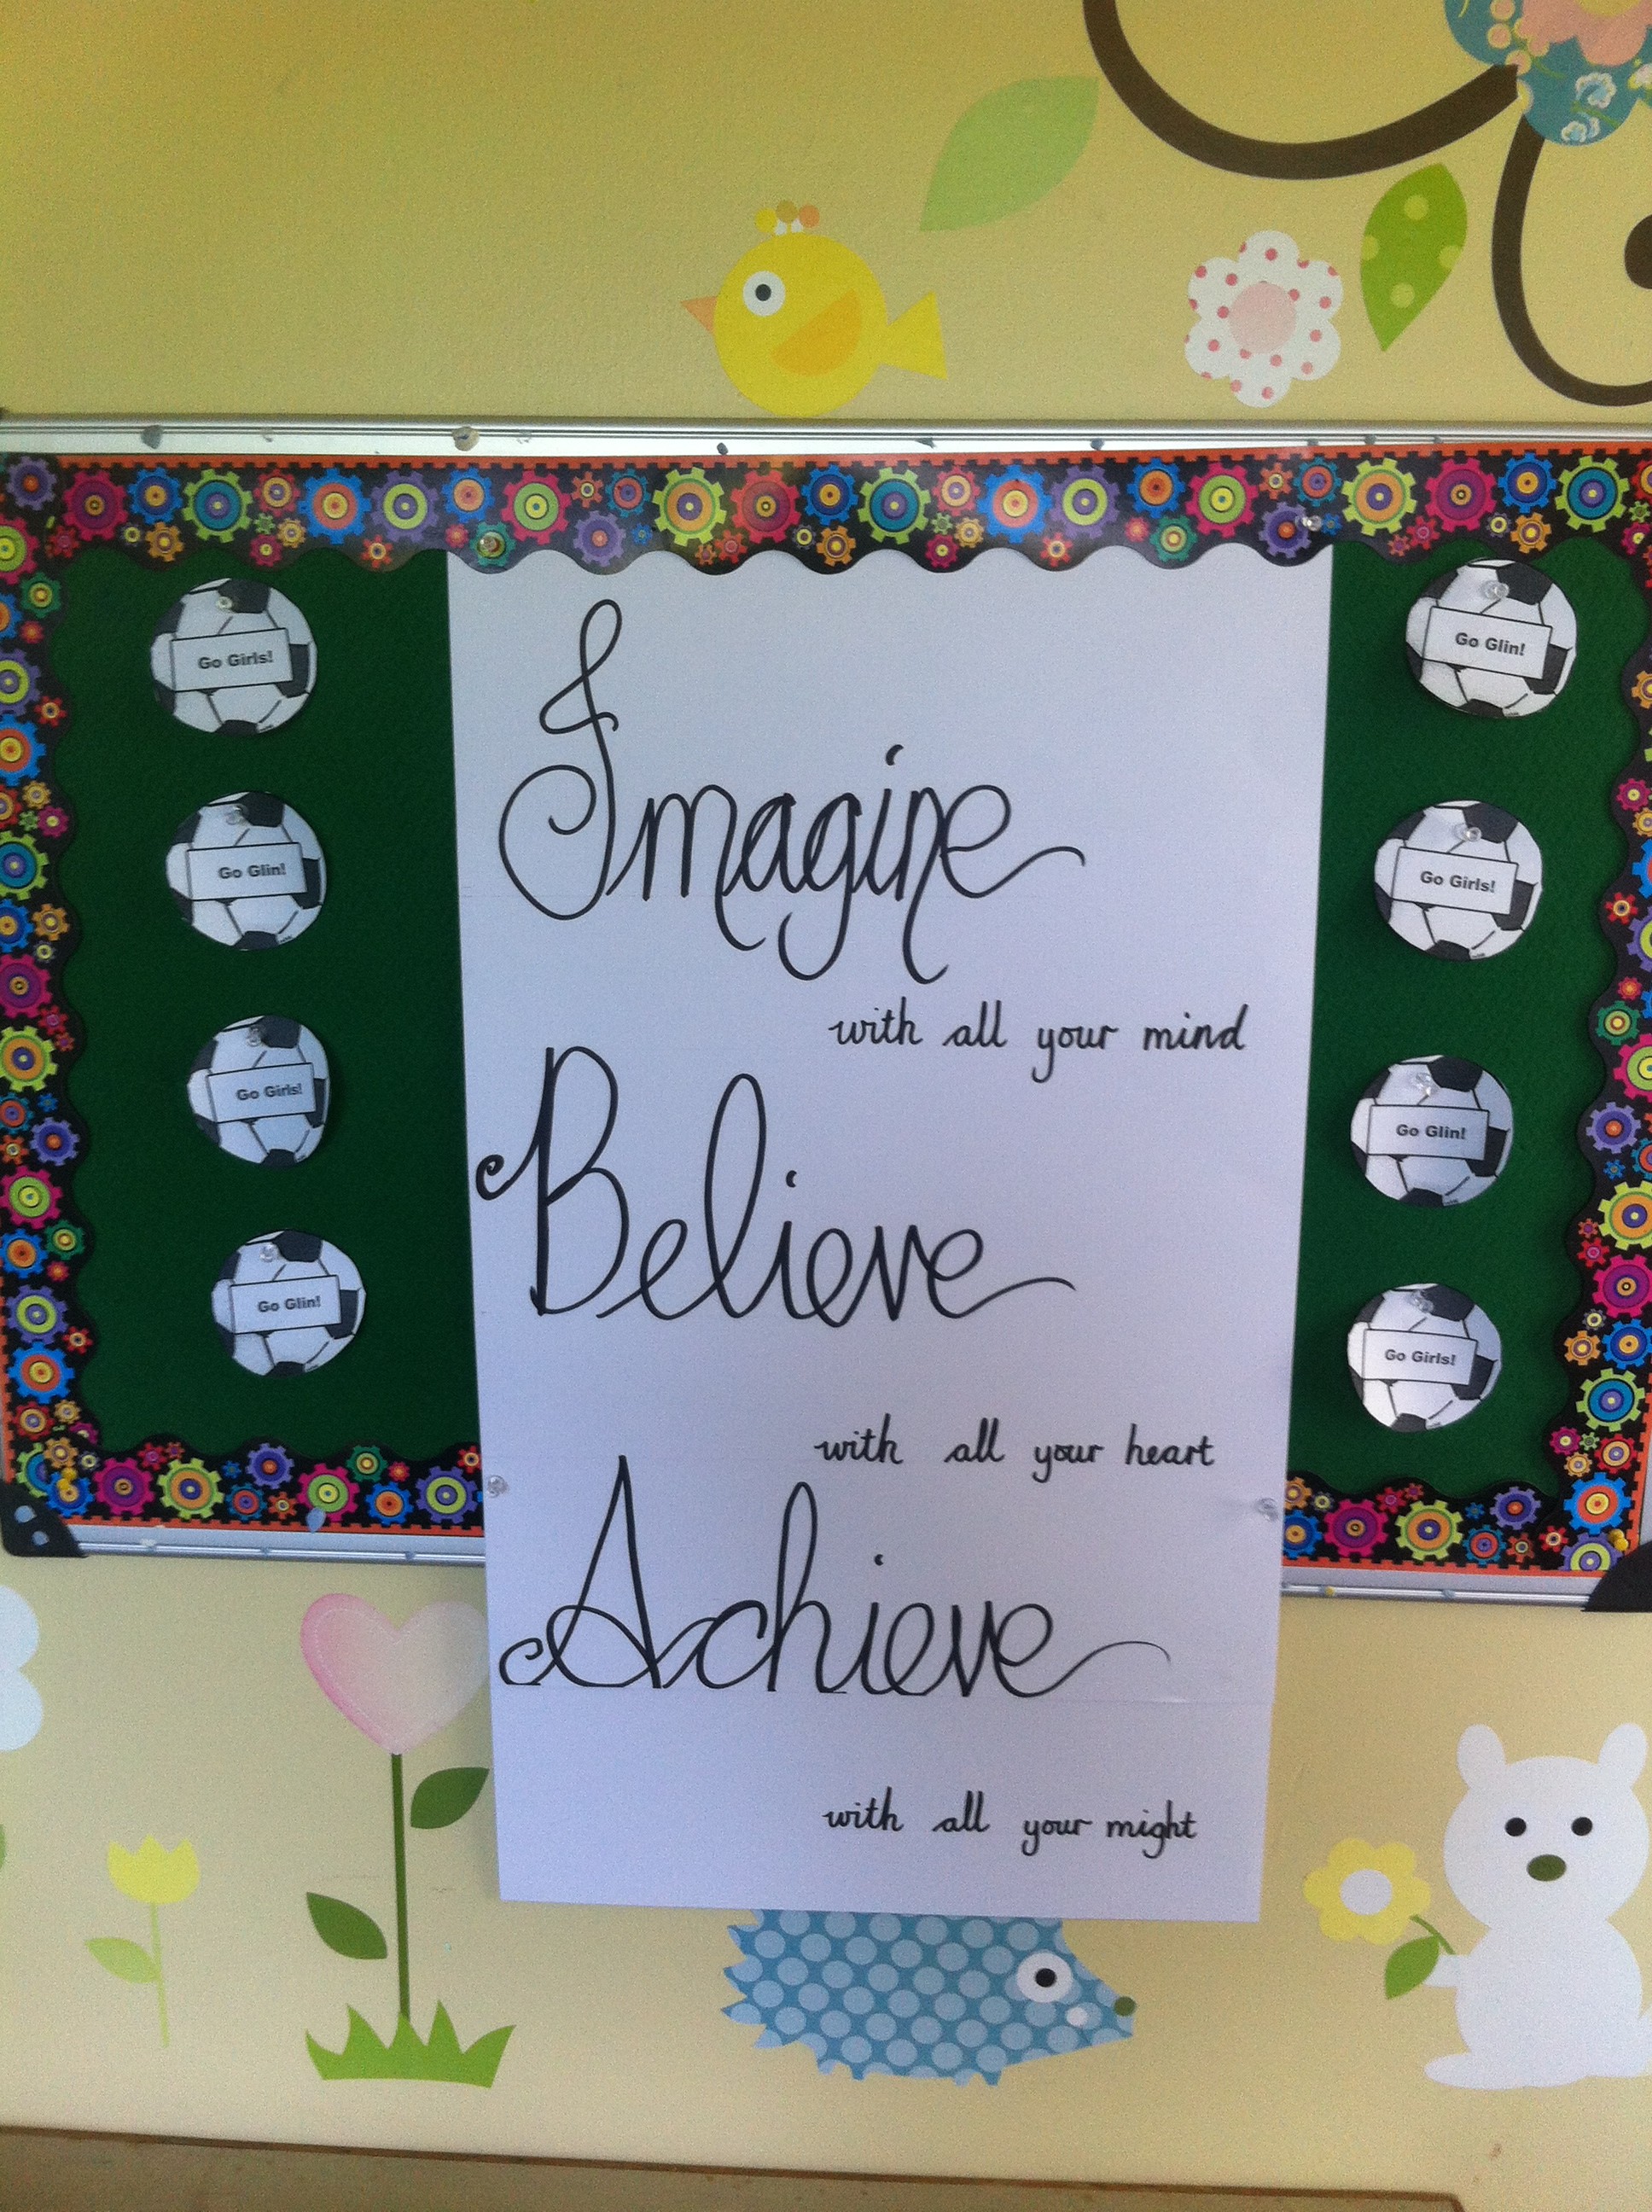 Go Girls!
Go Glin!
Go Girls!
Go Glin!
Imagine
with all your mind
Believe
with all your heart
Achieve
with all your might
Go Glin!
Go Girls!
Go Glin!
Go Girls!